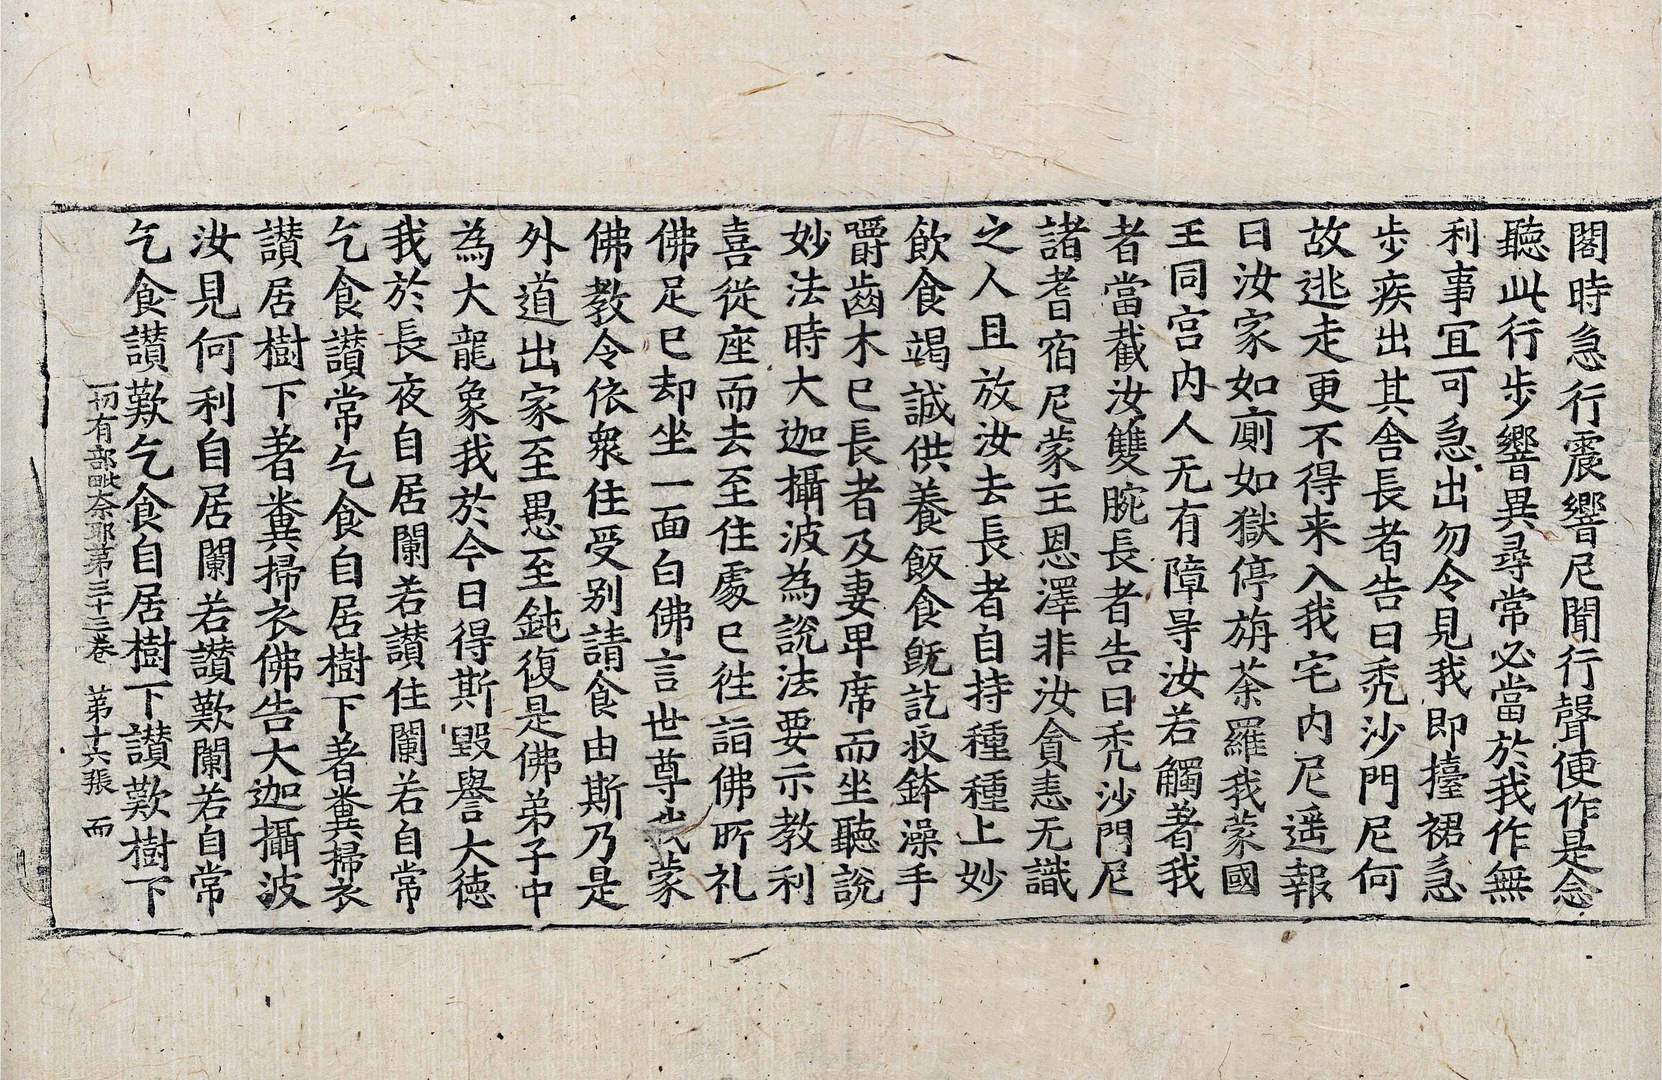 閣時急行震響尼聞行聲便作是念
聽此行步響異尋常必當於我作無
利事宜可急出勿令見我即擡裙急
步疾出其舍長者告曰禿沙門尼何
故逃走更不得来入我宅內尼遥報
曰汝家如廁如獄停旃荼羅我蒙國
王同宫内人无有障导汝若觸著我
者當截汝雙腕長者告曰禿沙門尼
諸耆宿尼蒙王恩澤非汝貪恚无識
之人且放汝去長者自持種種上妙
飲食竭誠供養飯食旣訖收鉢澡手
嚼齒木已長者及妻卑席而坐聽說
妙法時大迦攝波為說法要示教利
喜從座而去至住處已往詣佛所礼
佛足已却坐一面白佛言世尊我蒙
佛教令依衆住受别請食由斯乃是
外道出家至愚至鈍復是佛弟子中
為大龍象我於今日得斯毀譽大德
我於長夜自居闌若讃住闌若自常
乞食讃常乞食自居樹下著糞掃衣
讃居樹下著糞掃衣佛告大迦攝波
汝見何利自居闌若讃歎闌若自常
乞食讃歎乞食自居樹下讃歎樹下
一切有部毗奈耶第三十三卷 第十六張 而